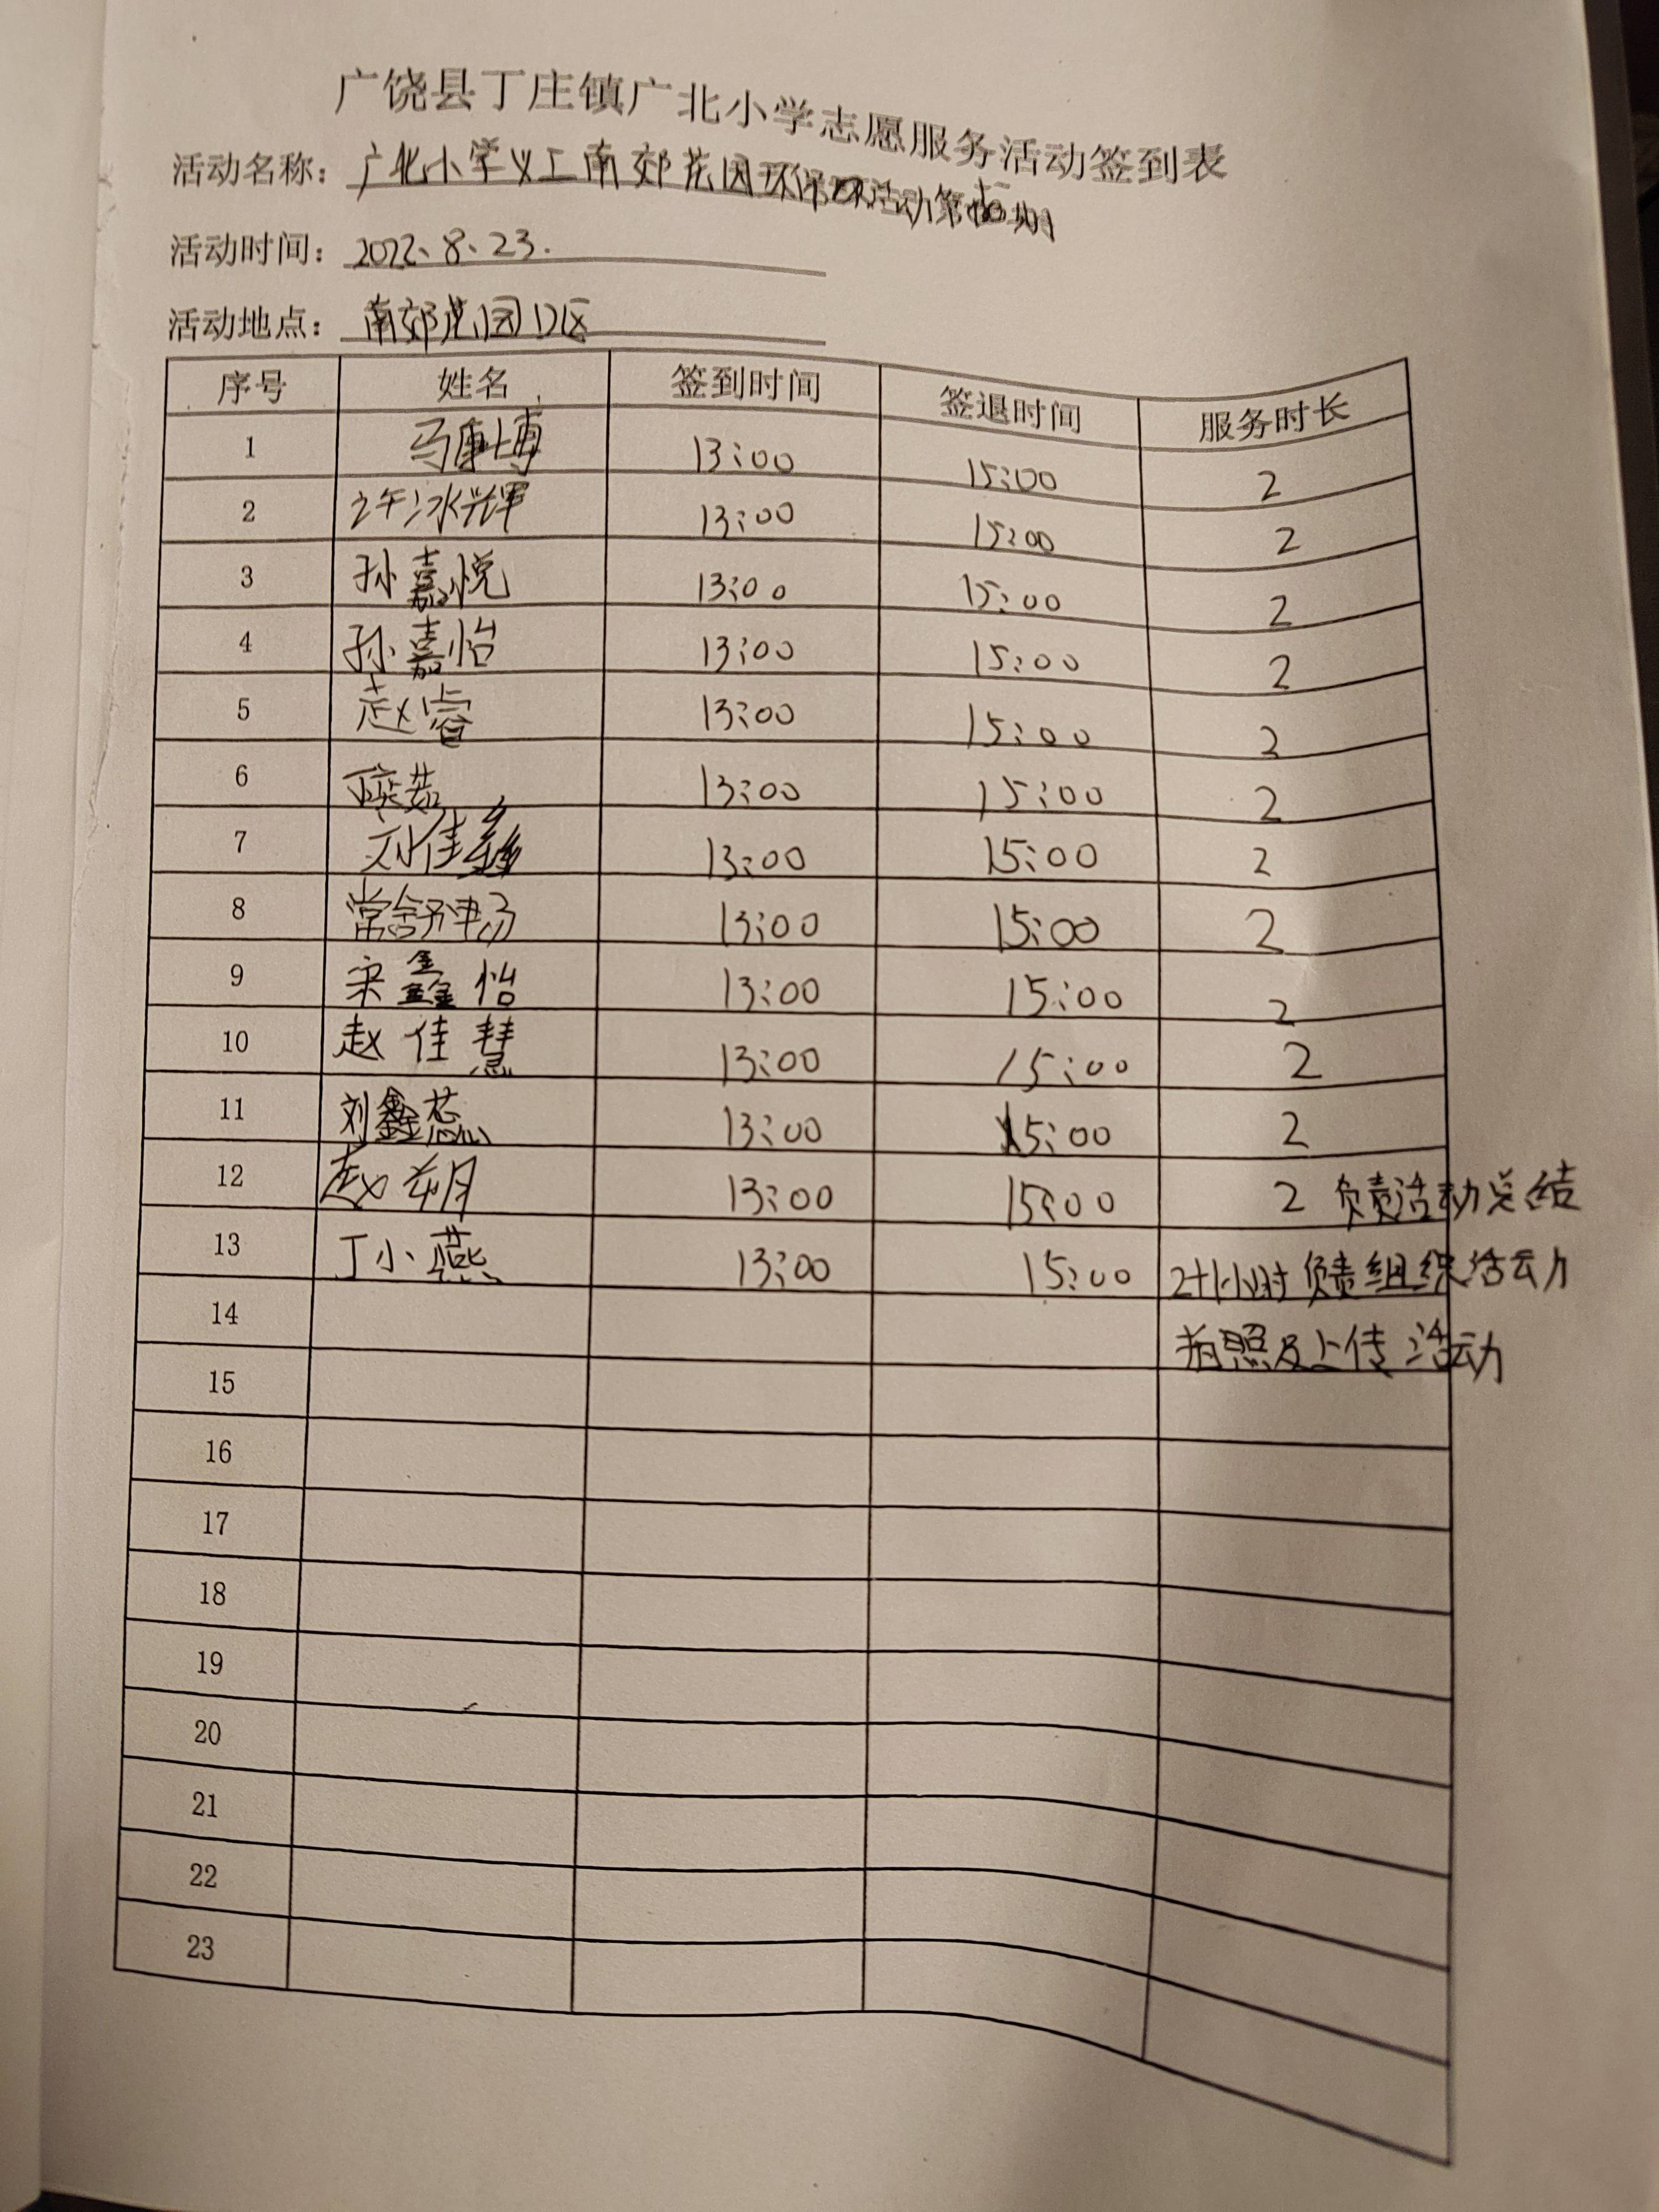 广饶县丁庄镇广北小学志愿服务活动签到表
活动名称：广北小学义工南郊花园环保活动第期
活动时间：2022、8、23.
活动地点：南郊花园D区
序号 姓名 签到时间 签退时间 服务时长
1 马康博 13:00 15:00 2
2 许冰辉 13:00 15:00 2
3 孙嘉悦 13:00 15:00 2
4 孙嘉怡 13:00 15:00 2
5 赵睿 13:00 15:00 2
6 茹 13:00 15:00 2
7 刘佳 13:00 15:00 2
8 常舒 13:00 15:00 2
9 宋鑫怡 13:00 15:00 2
10 赵佳慧 13:00 15:00 2
11 刘鑫蕊 13:00 15:00 2
12 赵 13:00 15:00 2 负责活动总结
13 丁小燕 13:00 15:00 2+1小时 负责组织活动
14 拍照及上传活动
15
16
17
18
19
20
21
22
23